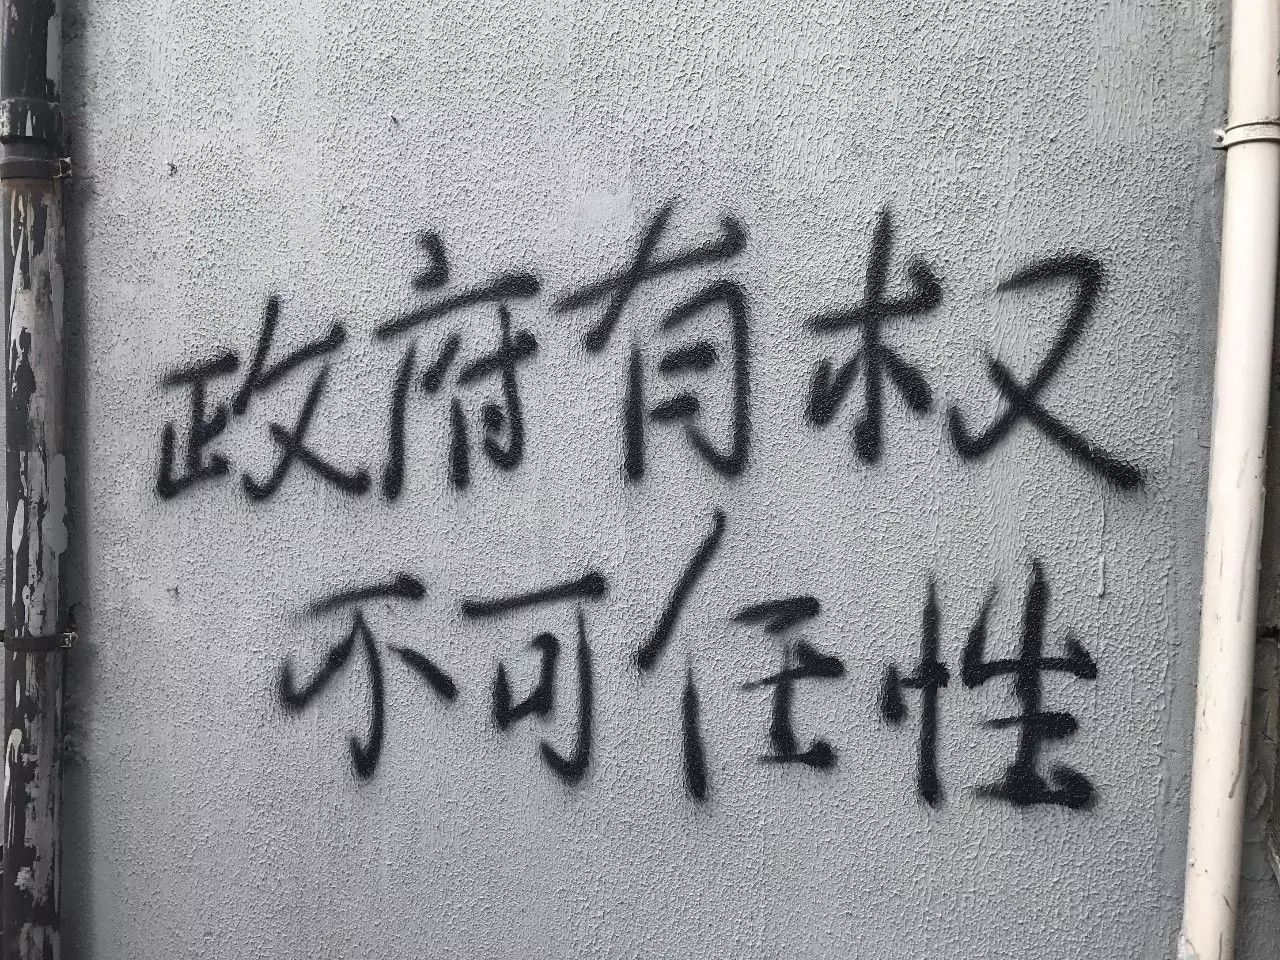 政府有权
不可任性